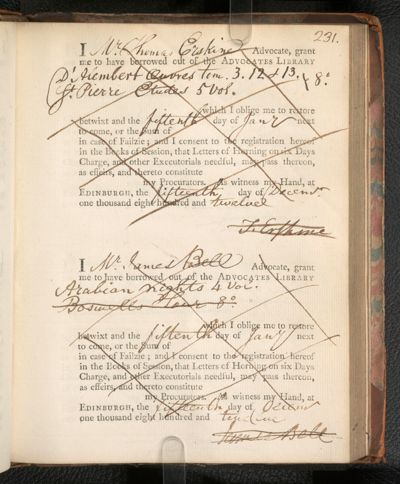 231.
I Mr. Thomas Erskine Advocate, grant
me to have borrowed out of the ADVOCATES LIBRARY
D'Alembert Œuvres tom. 3. 12 & 13. } 8o.
St. Pierre Etudes 5 Vol.
which I oblige me to restore
betwixt and the fifteenth day of Jany next
to come, or the Sum of
in case of Failzie; and I consent to the registration hereof
in the Books of Session, that Letters of Horning on six Days
Charge, and other Executorials needful, may pass thereon,
as effeirs, and thereto constitute
my Procurators. As witness my Hand, at
EDINBURGH, the fifteenth day of Decemr
one thousand eight hundred and twelve
Ts Erskine
I Mr. James Bell Advocate, grant
me to have borrowed out of the ADVOCATES LIBRARY
Arabian nights 4 Vol.
Boswells Tour 8o
which I oblige me to restore
betwixt and the fifteenth day of Jany next
to come, or the Sum of
in case of Failzie; and I consent to the registration hereof
in the Books of Session, that Letters of Horning on six Days
Charge, and other Executorials needful, may pass thereon,
as effeirs, and thereto constitute
my Procurators. As witness my Hand, at
EDINBURGH, the fifteenth day of Decemr
one thousand eight hundred and twelve
James Bell